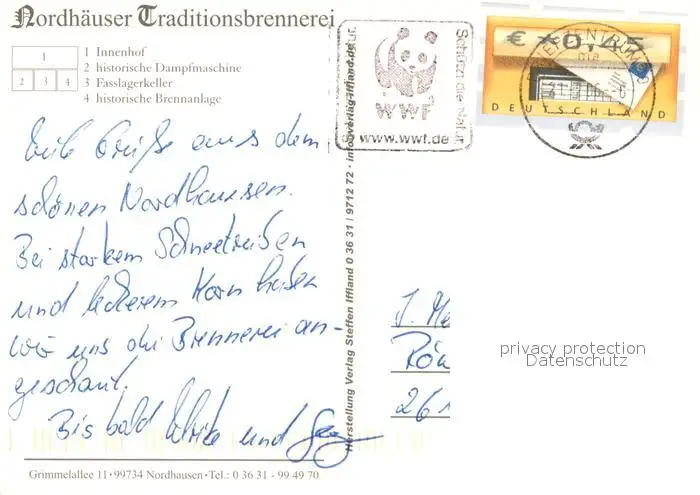 Nordhäuser Traditionsbrennerei
1
2 3 4
1 Innenhof
2 historische Dampfmaschine
3 Fasslagerkeller
4 historische Brennanlage
WWF
www.wwf.de
Schützt die Natur
€ *0,45
DEUTSCHLAND
BRIEFZENTRUM
Viele Grüße aus dem
schönen Nordhausen.
Bei starkem Schneetreiben
und leckerem Korn haben
wir uns die Brennerei an-
geschaut.
Bis bald Ulrike und
Herstellung Verlag Steffen Iffland 0 36 31 / 9712 72 · info@verlag-iffland.de
J. Me
Rön
261
privacy protection
Datenschutz
Grimmelallee 11 · 99734 Nordhausen · Tel.: 0 36 31 - 99 49 70